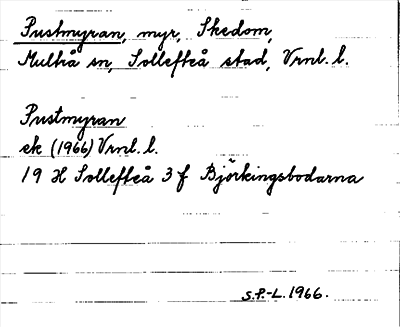 Pustmyran, myr, Skedom,
Multrå sn, Sollefteå stad, Vrnl. l.
Pustmyran
ek (1966) Vrnl. l.
19 H Sollefteå 3 f Björkingsbodarna
S.P.-L. 1966.